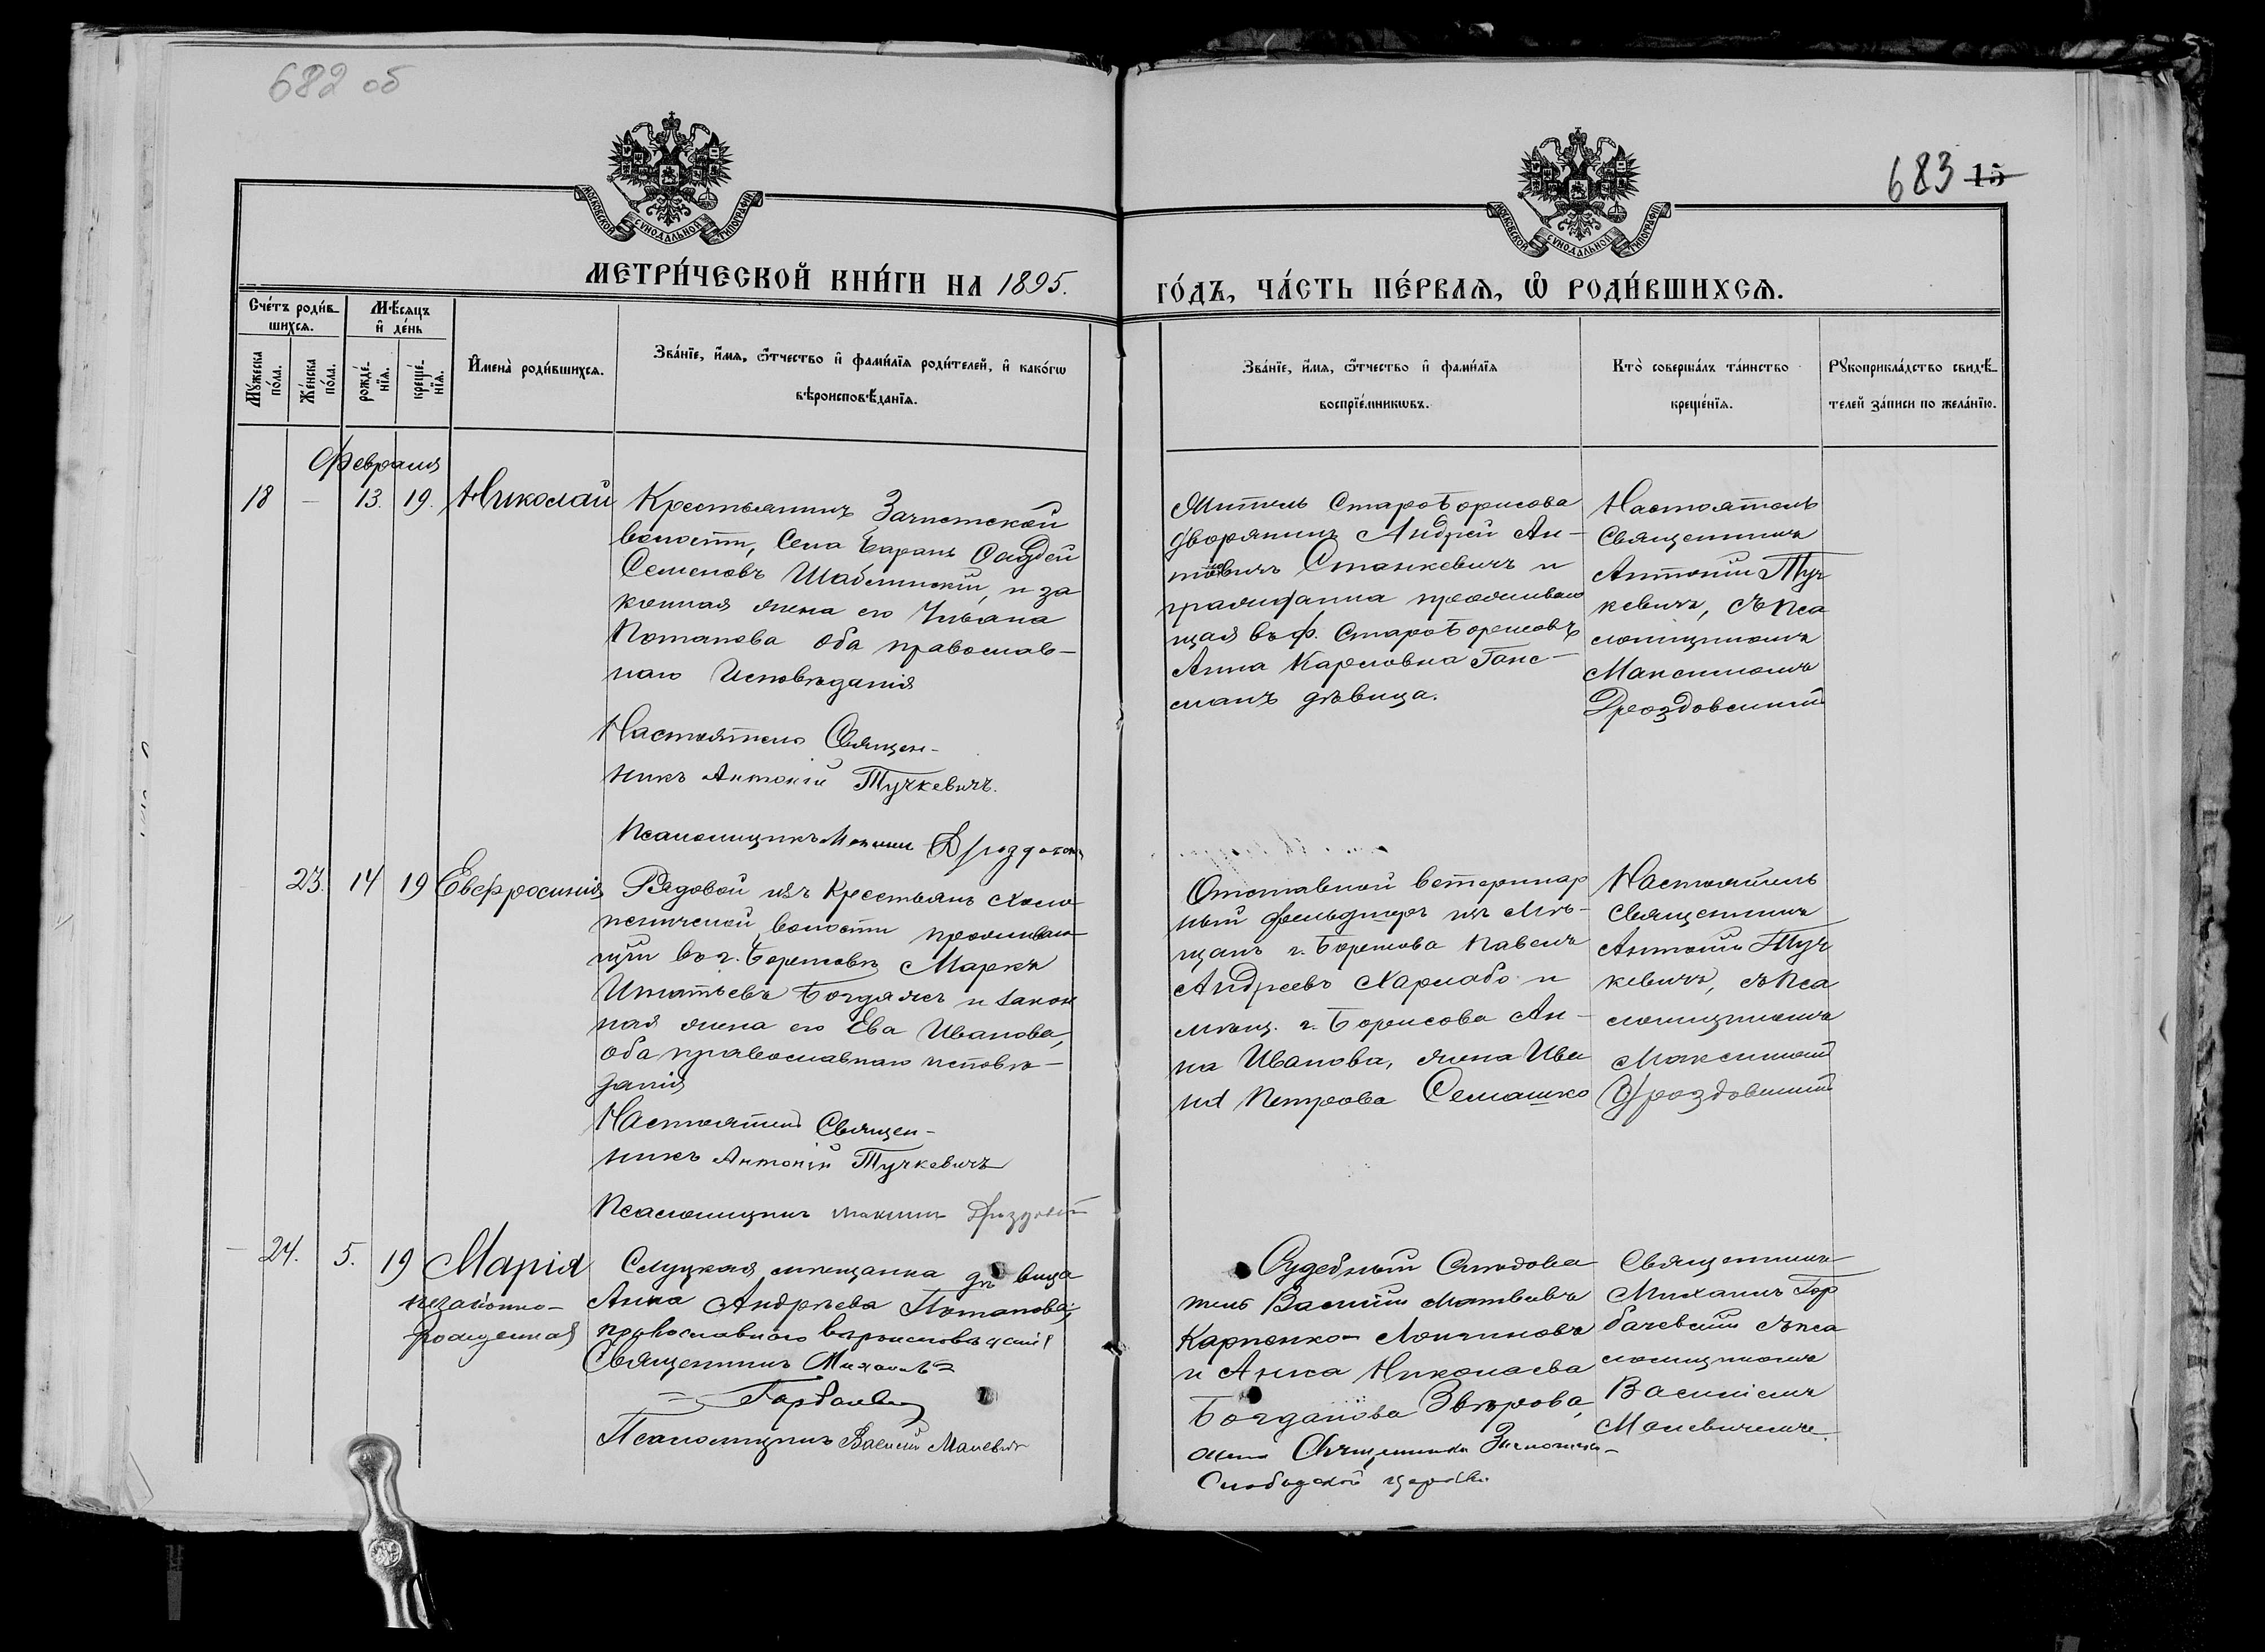 682 об
683 15
МОСКОВСКОЙ СѴНОДАЛЬНОЙ ТИПОГРАФІИ.
МОСКОВСКОЙ СѴНОДАЛЬНОЙ ТИПОГРАФІИ.
МЕТРИ́ЧЕСКОЙ КНИ́ГИ НА 1895.
ГО́ДЪ, ЧА́СТЬ ПЕ́РВАЯ, Ѽ РОДИ́ВШИХСЯ.
Сче́тъ роди́в-
шихся.
Мѣ́сяцъ
и҆ де́нь
Мꙋ́жеска
по́ла.
Же́нска
по́ла.
рожде́-
нїя.
креще́-
нїя.
И҆мена̀ роди́вшихся.
Зва́нїе, и҆́мя, ѻ҆́тчество и҆ фами́лїя роди́телей, и҆ како́гѡ
вѣроисповѣ́данїя.
Зва́нїе, и҆́мя, ѻ҆́тчество и҆ фами́лїя
воспрїе́мникѡвъ.
Кто̀ соверша́лъ та́инство
креще́нїя.
Рꙋкоприкла́дство свидѣ́-
телей за́писи по жела́нїю.
Февраля
18 — 13. 19. Николай
Крестьянинъ Зачистской
волости, Села Баранъ Фаддей
Семеновъ Шаблинскій, и за
конная жена его Ульяна
Потапова оба православ-
наго Исповѣданія
Настоятель Священ-
никъ Антоній Тучкевичъ.
Псаломщикъ Максим
Житель СтароБорисова
дворянинъ Андрей Ан-
тоновичъ Станкевичъ и
гражданка проживаю
щая въ ф. СтароБорисовъ
Анна Карловна Ганс-
манъ дѣвица.
Настоятель
Священникъ
Антоній Туч
кевичъ, съ Пса
ломщикомъ
Максимомъ
Дроздовскимъ
23. 14 19 Евфросинія
Рядовой изъ Крестьянъ Холо
пеничской волости проживаю
щій въ г. Борисовѣ Маркъ
Игнатьевъ и закон
ная жена его Ева Иванова,
оба православнаго исповѣ-
данія
Настоятель Священ-
никъ Антоній Тучкевичъ
Псаломщикъ Максимъ
Отставной ветеринар
ный фельдшеръ изъ Мѣ-
щанъ г. Борисова Павелъ
Андреевъ и
мѣщ. г. Борисова Ан-
на Иванова, жена Ива
на Петрова Семашко
Настоятель
Священникъ
Антоній Туч
кевичъ, съ Пса
ломщикомъ
Максимомъ
Дроздовскимъ
— 24. 5. 19 Марія
незаконно-
рожденная
Слуцкая мѣщанка дѣвица
Анна Андреева Потапова,
православнаго вѣроисповѣданія
Священникъ Михаилъ
Горбачевскій
Псаломщикъ Василій Малевич
Судебный Слѣдова
тель Василій Матвѣевъ
Карпенко-Логвиновъ
и Анна Николаева
Богданова Звѣрова,
жена Священника
Слободской церкви.
Священникъ
Михаилъ Гор
бачевскій съ пса
ломщикомъ
Василіемъ
Малевичемъ.